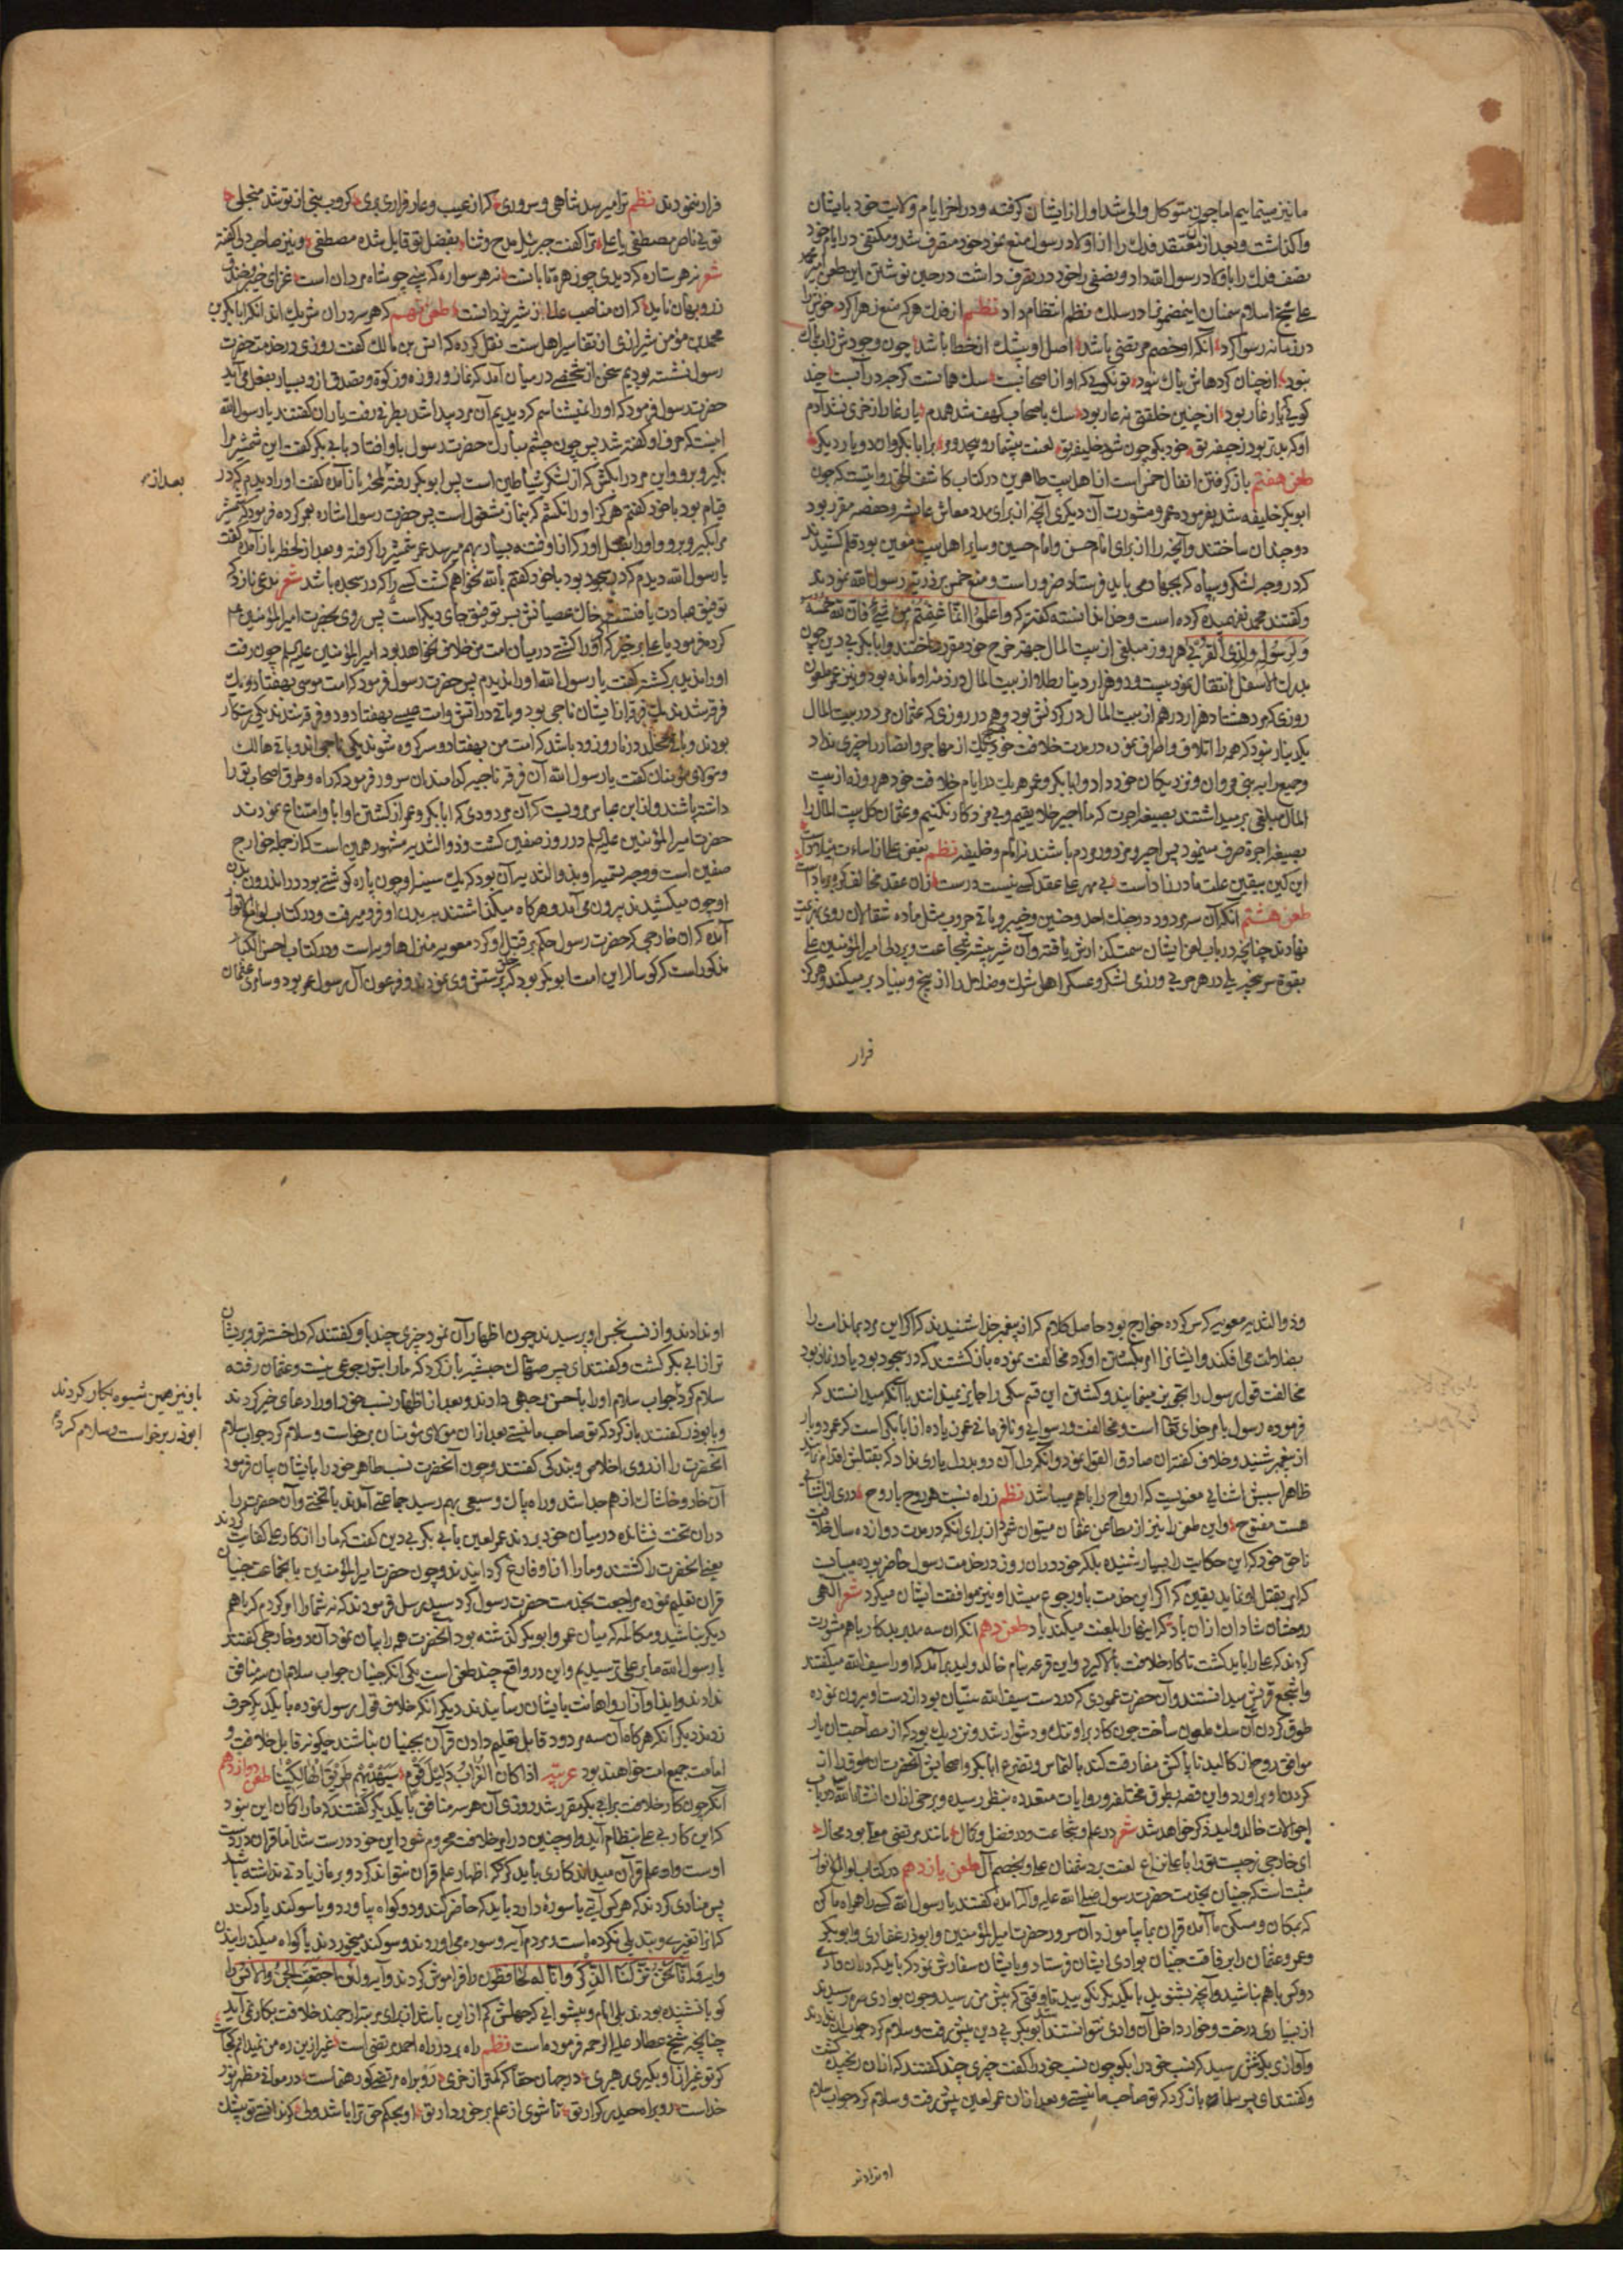 ما نیز مینماییم اما چون متوکل والی شد اول از ایشان کرفته و در اخر ایام ولایت خود بایشان
واکذاشت و بعد از معتقد فدک را از اولاد رسول منع نمود خود متصرف شد و مکتفی در ایام خود
نصف فدک را باولاد رسول الله داد و نصفی را خود در تصرف داشت در حین نوشتن این طعن
اسلام سمنان این مضمون در سلک نظم انتظام داد نظم از فدک هر که منع زهرا کرد خویش را
در زمانه رسوا کرد آنکه او خصم مرتضی باشد اصل او بیشک از خطا باشد چون وجودش
نبود از چنان کردهاش باک نبود تو نکویی که او از اصحابست سک همانست کرچه در آبست چند
کویی که یار غار بود از چنین خلقتی نه عار بود سک باصحاب کهف شد همدم یار غار از خری نشد آدم
او که بدتر بود ز جیفه بق خود بکو چون شود خلیفه بق لعنت بیشمار و بیحد و مر بر ابابکر وان دو یار دیکر
طعن هفتم باز کرفتن انفال خمس است از اهل بیت طاهرین در کتاب کاشف الحق روایتست که چون
ابو بکر خلیفه شد بفرموده عمر و مشورت آن دیکری آنچه از برای مدد معاش عایشه و حفصه مقرر بود
دو چندان ساختند و آنچه را از برای امام حسن و امام حسین و سایر اهل بیت معین بود قلم کشیدند
که در وجه لشکر و سپاه که بجهاد می باید فرستاد ضرور است و منع خمس بر ذریه رسول الله نمودند
و کفتند محمد نفهمیده کرده است و خدا ندانسته کفته که واعلموا انما غنمتم من شیء فان لله خمسه
وللرسول ولذی القربی هر روز مبلغی از بیت المال جهه خرج خود مقرر ساختند و ابابکر بی دین چون
بدرک الاسفل انتقال نمود بیست و دو هزار دینار طلا از بیت المال در ذمه او مانده بود و نیز عمر ملعون
روزی که مرد هشتاد هزار درهم از بیت المال در کردنش بود و هم در روزی که عثمان مرد در بیت المال
یک دینار نبود که همه را اتلاف و اطراف نموده در مدت خلافت خود هیچ یک از مهاجر و انصار را چیزی نداد
و جمیع را به بنی مروان و نزدیکان خود داد و ابابکر و عمر هر یک در ایام خلافت خود هر روزه از بیت
المال مبلغی بر میداشتند بصیغه اجرت که ما اجیر خلایقیم و بی مزد کار نکنیم و عثمان کل بیت المال را
بصیغه اجرة صرف مینمود پس اجیر و مزدور مردم باشند نه امام و خلیفه نظم
این کین بیقین علت مادر زاد است بی مهر علی عقد کسی نیست درست زان عقد مخالف
طعن هشتم آنکه آن سه مردود در جنک احد و حنین و خیبر و باقی حروب مثل ماده شغالان روی بهزیمت
نهادند چنانچه در باب لعن ایشان سمت کذارش یافته و آن شیر بیشه شجاعت و پر دلی امیر المؤمنین علی
بقوه سر پنجه یلی در هر حربی و رزمی لشکر و عسکر اهل شرک و ضلال را از بیخ و بنیاد بر میکند و هرکز
فرار
فرار ننمودند نظم ترا میرسد شاهی و سروری که از عیب و عار فراری بری
تویی ناصر مصطفی یا علی ترا کفت جبرئیل مدح و ثنا بفضل تو قایل شده مصطفی و نیز صاحبدلی کفته
شعر نه هر ستاره که دیدی چو زهره تابانست نه هر سواره که بینی چو شاه مردان است
طعن نهم که هر سه در ان شریک اند آنکه ابابکر
محمد بن مؤمن شیرازی از تفاسیر اهل سنت نقل کرده که انس بن مالک کفت روزی در خدمت حضرت
رسول نشسته بودیم سخن از شخصی در میان آمد که نماز و روزه و زکوة و تصدق از و بسیار بفعل می آید
حضرت رسول فرمود که او را نمیشناسم که دیدیم آن مرد پیدا شد بطرفی رفت یاران کفتند یا رسول الله
اینست که حرف او کفته شد پس چون چشم مبارک حضرت رسول باو افتاد بابی بکر کفت این شمشیر مرا
بکیر و برو و این مرد را بکش که از لشکر شیاطین است پس ابو بکر رفته باز آمد و کفت او را دیدم که در
بعد از
قیام بود با خود کفتم هرکز او را نکشم که بنماز مشغول است پس حضرت رسول اشاره بعمر کرده فرمود که شمشیر
مرا بکیر و برو و او را بقتل اور که از او فتنه بسیار بهم میرسد عمر شمشیر را کرفته و بعد از لحظه باز آمده کفت
یا رسول الله دیدم که در سجود بود با خود کفتم بالله نخواهم کشت کسی را که در سجده باشد شعر
توفیق عبادت یافتست خال عصیانش بس توفیق جای دیکر است پس روی بحضرت امیر المؤمنین
کرد فرمود یا علی بر خیز که اکر او را کشتی در میان امت من خلاف نخواهد بود امیر المؤمنین علیه السلم چون رفت
او را ندید برکشته کفت یا رسول الله او را ندیدم پس حضرت رسول فرمود که امت موسی بهفتاد و یک
فرقه شدند یک فرقه از ایشان ناجی بود و باقی در آتش و امت عیسی بهفتاد و دو فرقه شدند یکی رستکار
بودند و باقی مخلد در نار و زود باشد که امت من بهفتاد و سه کروه شوند یکی ناجی اند و باقی هالک
و مولای مؤمنان کفت یا رسول الله آن فرقه ناجیه کدامند ان سرور فرمود که راه و طرق اصحاب تو را
داشته باشند و از ابن عباس مرویست که آن مردودی که ابابکر و عمر از کشتن او ابا و امتناع نمودند
حضرت امیر المؤمنین علیه السلم در روز صفین کشت و ذو الثدیه مشهور همین است که از جمله خوارج
صفین است و وجه تسمیه او بذو الثدیه آن بود که یک سینه او چون پاره کوشتی بود در اندرون بدن
او چون میکشیدند بیرون می آمد و هرکاه میکذاشتند به بدن او فرو میرفت و در کتاب لوامع انوار
آمده که ان خارجی که حضرت رسول حکم بر قتل او کرد معویه منزل هاویه است و در کتاب احسن الکبار
مذکور است که کوساله این امت ابو بکر بود که خلق پرستش وی نمودند و فرعون آل رسول عمر بود و سامری عثمان
وذو الثدیه معویه کس کرده خوارج بود حاصل کلام که از پیغمبر خدا شنیدند که اکر این مرد بماند امت را
بضلالت می افکند و ایشانرا امر بکشتن او کرد مخالفت نموده باز کشتند که در سجود بود یا در نماز بود
مخالفت قول رسول را تجویز مینمایند و کشتن این قسم سکی را جایز نمیدانند با آنکه میدانستند که
فرموده رسول بامر خدای تعالی است و مخالفت و رسوایی و نافرمانی عمر زیاده از ابابکر است که عمر دو بار
از پیغمبر شنید و خلاف کفته ان صادق القول نمود و آنکه دل آن دو بد دل یاری نداد که بقتلش اقدام نمایند
ظاهرا سببش اشنایی معنویست که ارواح را با هم میباشد نظم ز راه نسبت هر روح با روح دری از آشنایی
هست مفتوح و این طعن را نیز از مطاعن عثمان میتوان شمرد از برای آنکه در مدت دوازده سال خلافت
ناحق خود که این حکایت را بسیار شنیده بلکه خود در ان روز در خدمت رسول حاضر بوده میبایست
که امر بقتل او نماید یقین که اکر این خدمت باو رجوع میشد او نیز موافقت ایشان میکرد شعر الهی
روحشان شادان از ان باد که اینها را بلعنت میکند یاد طعن دهم آنکه ان سه مدبر بدکار با هم مشورت
کردند که علی را باید کشت تا کار خلافت بما کیرد و این قرعه بنام خالد ولید بر آمد که او را سیف الله میکفتند
و اشجع قریش میدانستند و آن حضرت عمودی که در دست سیف الله شیطان بود از دست او بیرون نموده
طوق کردن آن سک ملعون ساخت چون کار بر او تنک و دشوار شد و نزدیک بود که از مصاحبتان یار
موافق روح از کالبد ناپاکش مفارقت کند بالتماس و تضرع ابابکر و اصحابش آنحضرت ان طوق را از
کردن او بر اورد و این قصه بطرق مختلفه و روایات متعدده بنظر رسیده و برخی از ان انشاء الله در باب
احوالات خالد ولید ذکر خواهد شد شعر در علم و شجاعت و در فضل و کمال مانند مرتضی معلی بود محال
ای خارجی ز چیست تو را با علی نزاع لعنت بدشمنان علی و بخصم آل طعن یازدهم در کتاب لوامع انوار
مثبت است که جنیان بخدمت حضرت رسول صلی الله علیه و آله آمده کفتند یا رسول الله کسی را همراه ما کن
که بمکان و مسکن ما آمده قران بما بیاموزد آن سرور حضرت امیر المؤمنین و ابوذر غفاری و ابو بکر
و عمر و عثمان را برفاقت جنیان بوادی ایشان فرستاد و بایشان سفارش نمود که باید که در ان وادی
دو کس با هم نباشید و آنچه بشنوید با یکدیکر نکویید تا وقتی که پیش من رسید و چون بوادی مزبور رسیدند
از بسیاری درخت و خار داخل آن وادی نتوانستند شد ابو بکر بی دین پیش رفت و سلام کرد جواب ندادند
و آوازی بکوشش رسید که نسب خود را بکو چون نسب خود را کفت چیزی چند کفتند که از ان رنجیده کشت
و کفتند ای پسر سلمه باز کرد که تو صاحب ما نیستی و بعد از ان عمر لعین پیش رفت و سلام کرد جواب سلام
او ندادند
او ندادند و از نسب نحس او پرسیدند چون اظهار آن نمود چیزی چند باو کفتند که دلخسته تر و پریشان
تر از ابی بکر کشت و کفتند ای پسر صهاک حبشیه باز کرد که ما را بتو رجوعی نیست و عثمان رفته
سلام کرد جواب سلام او را باحسن وجهی دادند و بعد از اظهار نسب خود او را دعای خیر کردند
با و نیز همین شیوه بکار کردند
و با بوذر کفتند باز کرد که تو صاحب ما نیستی بعد از ان مولای مؤمنان بر خواست و سلام کرد جواب سلام
ابوذر بر خواست و سلام کرد
آنحضرت را از روی اخلاص و بندکی کفتند و چون آنحضرت نسب طاهر خود را بایشان بیان فرمود
آن خار و خاشاک از هم جدا شد و راه پاک و وسیعی بهم رسید جماعتی آمدند با تختی و آن حضرت را
در ان تخت نشانده در میان خود بردند عمر لعین بابی بکر بی دین کفت که ما را از کار علی کفایت کردند
یعنی آنحضرت را کشتند و ما را از او فارغ کردانیدند و چون حضرت امیر المؤمنین بانجماعت جنیان
قران تعلیم نموده مراجعت بخدمت حضرت رسول کرد سید رسل فرمودند که نه شما را امر کردم که با هم
دیکر نباشید و مکالمه که میان عمر و ابو بکر کذشته بود آنحضرت همه را بیان نمود آن دو خارجی کفتند
یا رسول الله ما بر علی ترسیدیم و این در واقع چند طعن است یکی آنکه جنیان جواب سلام ان سه منافق
ندادند و ایذا و آزار و اهانت بایشان رسانیدند دیکر انکه خلاف قول رسول نموده با یکدیکر حرف
زدند دیکر آنکه هرکاه آن سه مردود قابل تعلیم دادن قرآن بجنیان نباشند چکونه قابل خلافت و
امامت جمیع امت خواهند بود عربیه اذا کان الغراب دلیل قوم سیهدیهم طریق الهالکینا طعن دوازدهم
آنکه چون کار خلافت بر ابی بکر مقرر شد روزی آن هر سه منافق با یکدیکر کفتند که ما را کمان این نبود
که این کار بی علی بنظام آید و او چنین در امر خلافت محروم شود این خود درست شد اما قران در دست
اوست و او علم قرآن میداند کاری باید کرد که اظهار علم قران نتواند کرد و بر ما زیادتی نداشته باشد
پس منادی کردند که هر کس آیتی یا سورهٔ دارد باید که حاضر کند و دو کواه بیاورد و یا سوکند یاد کند
که انرا تغییر و تبدیلی نکرده است و مردم آیه و سوره می اوردند و سوکند میخوردند یا کواه میکذرانیدند
و ایه انا نحن نزلنا الذکر و انا له لحافظون را فراموش کردند و آیه و لئن اجتمعت الجن والانس را
کویا نشنیده بودند بلی امام و پیشوایی که جهلش کم از این باشد از برای مرتبه ارجمند خلافت بکار نمی آید
چنانچه شیخ عطار علیه الرحمه فرموده است نظم راه مرد در راه احمد مرتضی است غیر از این ره من نمیدانم کجاست
کر تو غیر از او بکیری رهبری در جهان حقا که کمتر از خری رو براه مرتضی کو رهنماست در معانی مظهر نور
خداست رو براه حیدر کرار تو تا شوی از علم برخوردار تو او بحکم حق ترا باشد ولی